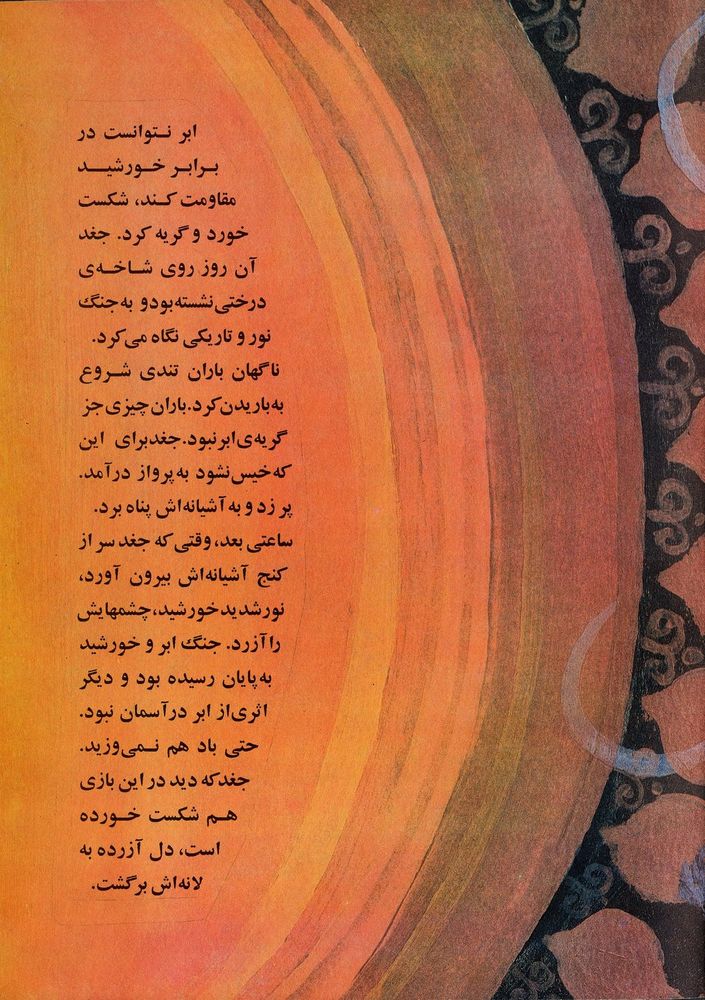 ابر نتوانست در
برابر خورشید
مقاومت کند، شکست
خورد و گریه کرد. جغد
آن روز روی شاخه‌ی
درختی نشسته بود و به جنگ
نور و تاریکی نگاه می‌کرد.
ناگهان باران تندی شروع
به باریدن کرد. باران چیزی جز
گریه‌ی ابر نبود. جغد برای این
که خیس نشود به پرواز درآمد.
پر زد و به آشیانه‌اش پناه برد.
ساعتی بعد، وقتی که جغد سر از
کنج آشیانه‌اش بیرون آورد،
نور شدید خورشید، چشمهایش
را آزرد. جنگ ابر و خورشید
به پایان رسیده بود و دیگر
اثری از ابر در آسمان نبود.
حتی باد هم نمی‌وزید.
جغد که دید در این بازی
هم شکست خورده
است، دل آزرده به
لانه‌اش برگشت.